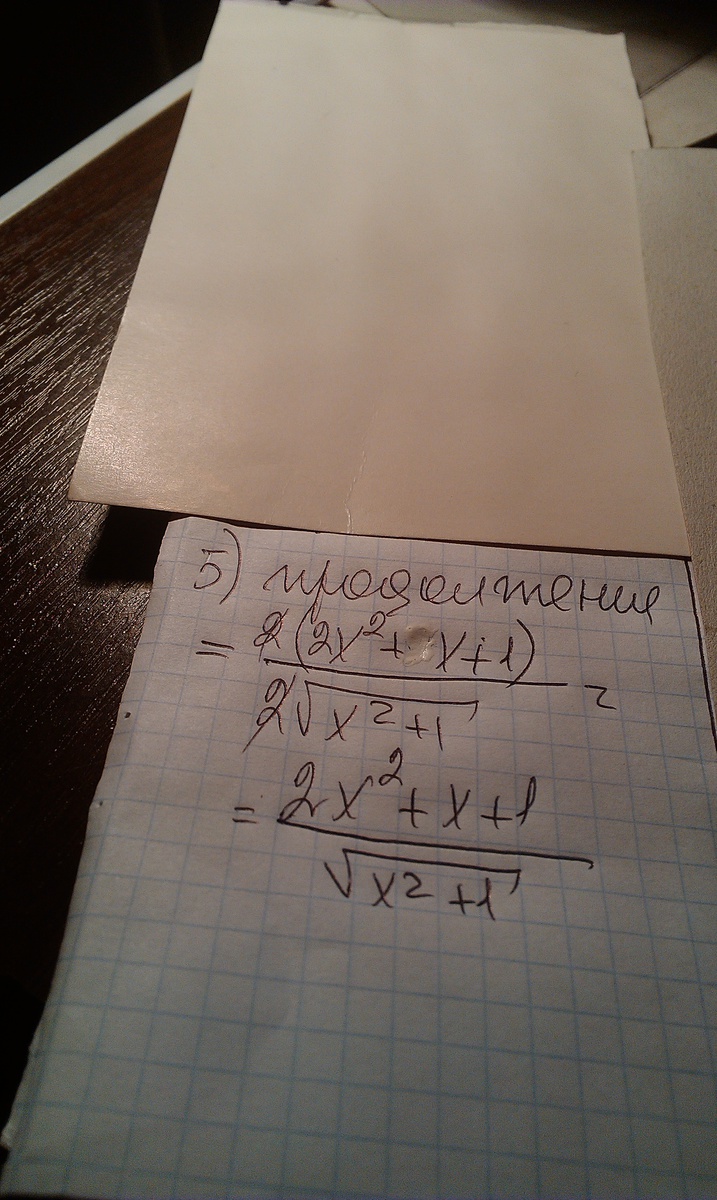 5) продолжение
= 2(2x²+ x+1) / 2√(x²+1) =
= 2x²+x+1 / √(x²+1)